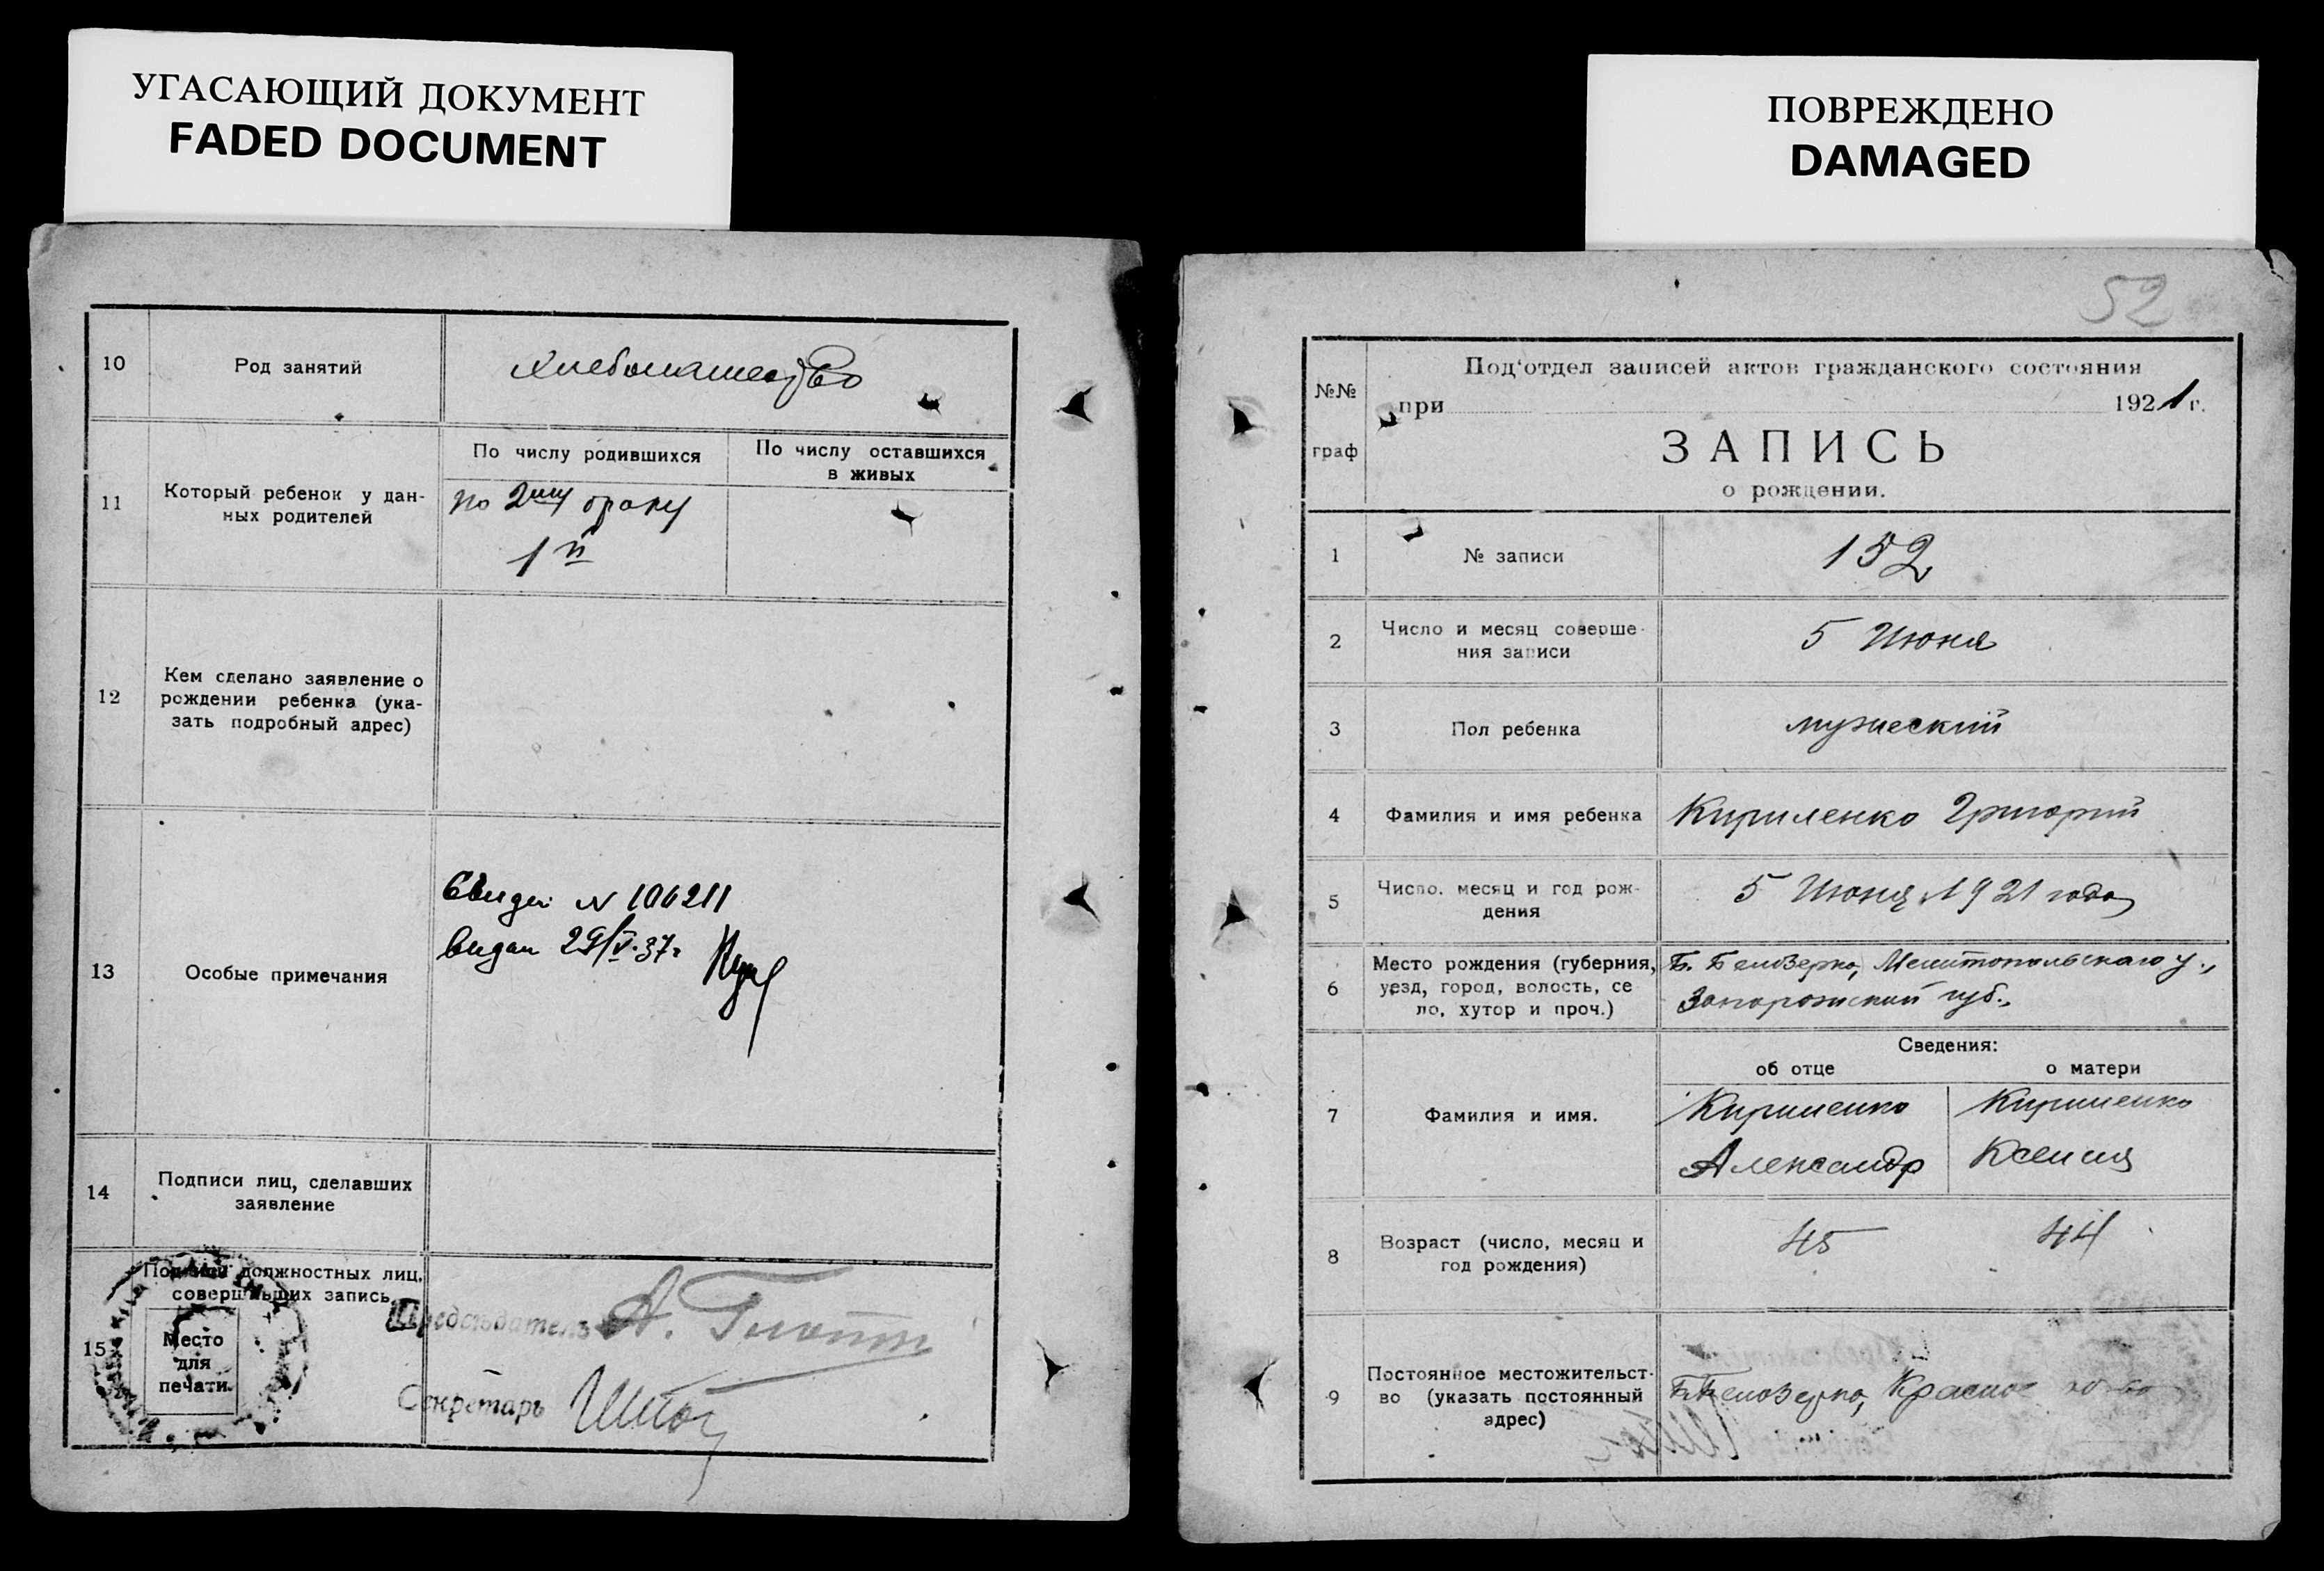 УГАСАЮЩИЙ ДОКУМЕНТ
FADED DOCUMENT
10
Род занятий
Хлебопашество
11
Который ребенок у дан-
ных родителей
По числу родившихся
По числу оставшихся
в живых
по 2му браку
1й
12
Кем сделано заявление о
рождении ребенка (ука-
зать подробный адрес)
13
Особые примечания
Свидет. N 106211
видан 29/V-37г
14
Подписи лиц, сделавших
заявление
15
Подписи должностных лиц,
совершивших запись
Место
для
печати
Председатель А.
Секретарь
ПОВРЕЖДЕНО
DAMAGED
52
№№
граф
Под‘отдел записей актов гражданского состояния
при 1921 г.
ЗАПИСЬ
о рождении.
1
№ записи
152
2
Число и месяц соверше-
ния записи
5 Июня
3
Пол ребенка
мужеский
4
Фамилия и имя ребенка
Кириленко Григорий
5
Число. месяц и год рож-
дения
5 Июня 1921 года
6
Место рождения (губерния,
уезд, город, волость, се
ло, хутор и проч.)
Б. Белозерка, Мелитопольскаго у.,
Запорожской губ.,
Сведения:
об отце
о матери
7
Фамилия и имя.
Кириленко
Александр
Кириленко
Ксения
8
Возраст (число, месяц и
год рождения)
45
44
9
Постоянное местожительст-
во (указать постоянный
адрес)
Б. Белозерка, Красное